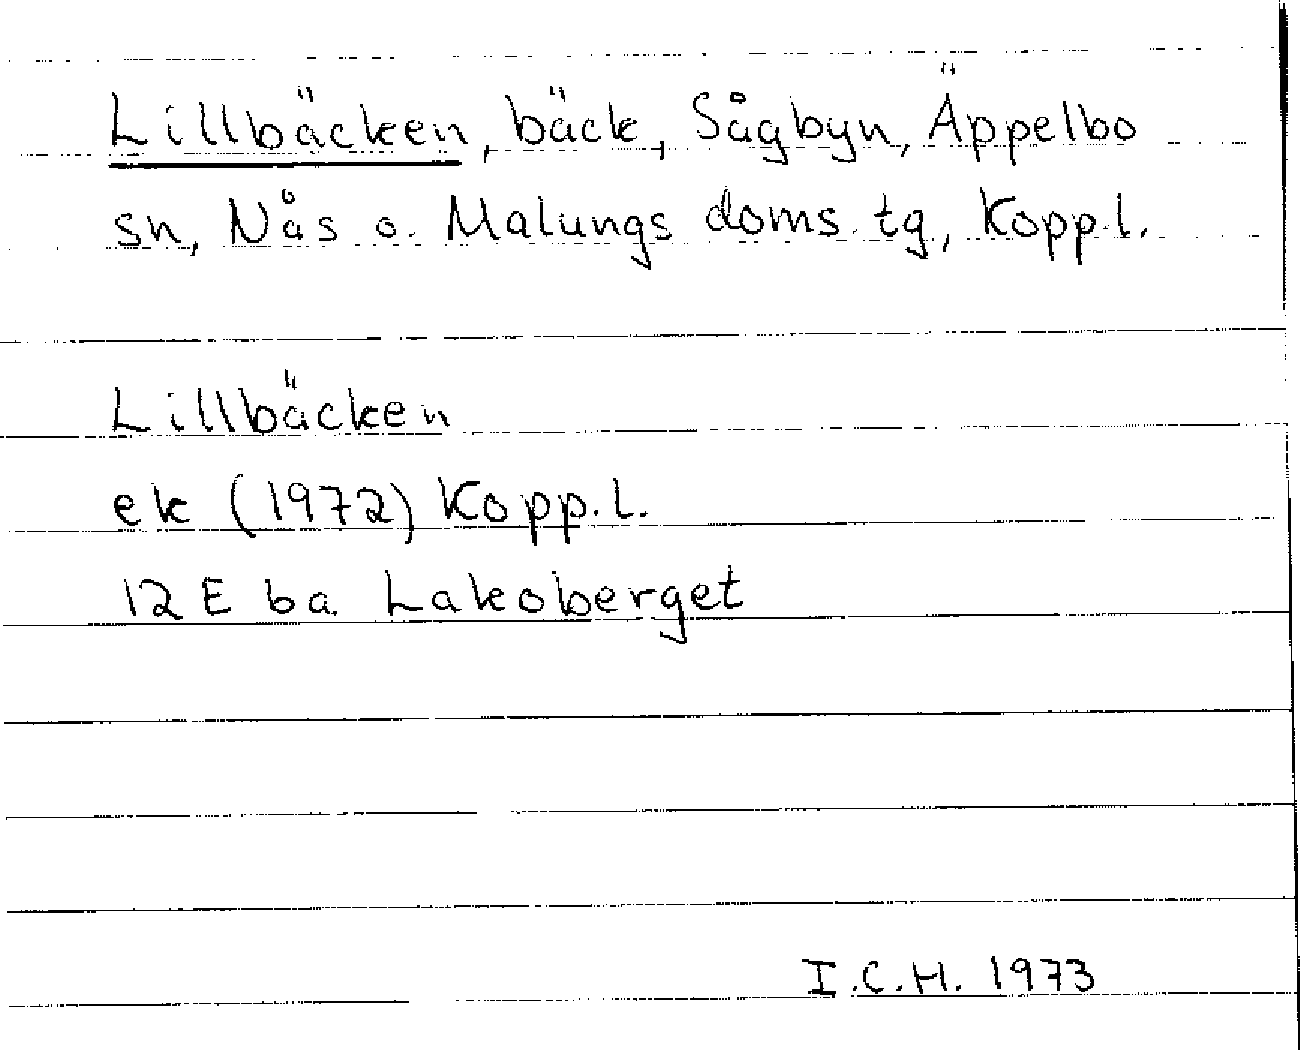 Lillbäcken, bäck, Sågbyn, Äppelbo
sn, Nås o. Malungs doms.tg, Kopp.l.
Lillbäcken
ek (1972) Kopp.l.
12 E ba Lakoberget
I.C.H. 1973